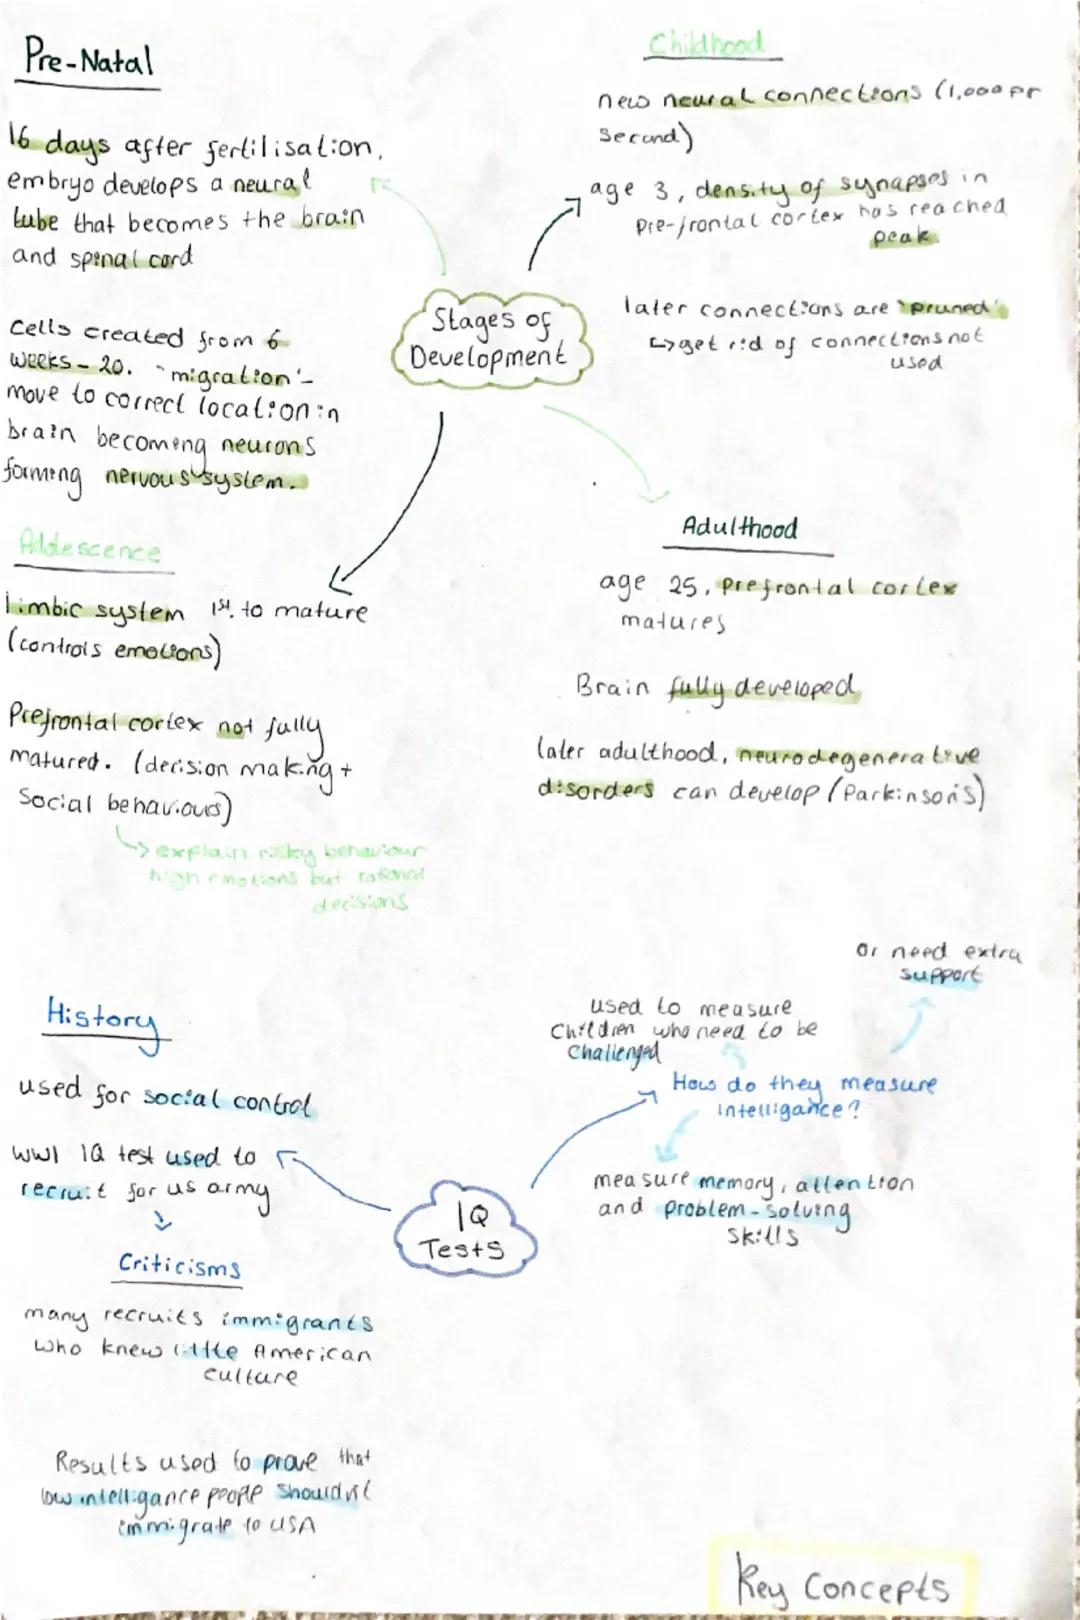 Pre-Natal
16 days after fertilisation,
embryo develops a neural
tube that becomes the brain
and spinal cord
Cells created from 6
weeks - 20. "migration" -
move to correct location in
brain becoming neurons
forming nervous system.
Childhood
new neural connections (1,000 pr
second)
age 3, density of synapses in
pre-frontal cortex has reached
peak.
later connections are 'pruned'
↳ get rid of connections not
used
Stages of
Development
Adolescence
limbic system 1st. to mature
(controls emotions)
Prefrontal cortex not fully
matured. (decision making +
Social behaviours)
↳ explain risky behaviour
high emotions but rational
decisions
Adulthood
age 25, prefrontal cortex
matures
Brain fully developed
later adulthood, neurodegenerative
disorders can develop (Parkinson's)
History
used for social control
WW1 IQ test used to
recruit for us army
Criticisms
many recruits immigrants
who knew little American
culture
Results used to prove that
low intelligance people shouldn't
immigrate to USA
IQ
Tests
or need extra
support
used to measure
Children who need to be
Challenged
How do they measure
intelligance?
measure memory, attention
and problem-solving
skills
Key Concepts